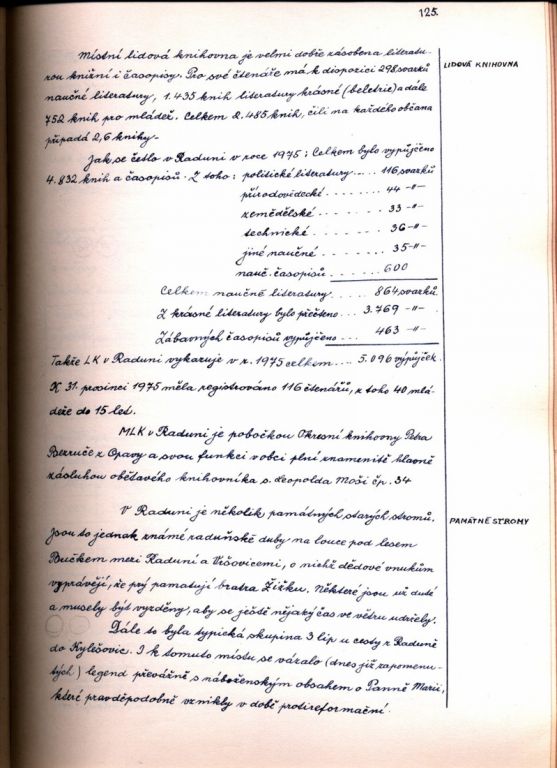 125.
Místní lidová knihovna je velmi dobře zásobena literatu-
LIDOVÁ KNIHOVNA
rou knižní i časopisy. Pro své čtenáře má k dispozici 298 svazků
naučné literatury, 1.435 knih literatury krásné (beletrie) a dále
752 knih pro mládež. Celkem 2.485 knih, čili na každého občana
připadá 2,6 knihy.
Jak se četlo v Raduni v roce 1975: Celkem bylo vypůjčeno
4.832 knih a časopisů. Z toho: politické literatury .... 116 svazků
přírodovědecké ........ 44 -"-
zemědělské ......... 33 -"-
technické .......... 36 -"-
jiné naučné ........ 35 -"-
nauč. časopisů ........ 600
Celkem naučné literatury ...... 864 svazků.
Z krásné literatury bylo přečteno ... 3.769 -"-
Zábavných časopisů vypůjčeno .... 463 -"-
Takže LK v Raduni vykazuje v r. 1975 celkem .... 5.096 výpůjček.
K 31. prosinci 1975 měla registrováno 116 čtenářů, z toho 40 mlá-
deže do 15 let.
MLK v Raduni je pobočkou Okresní knihovny Petra
Bezruče z Opavy a svou funkci v obci plní znamenitě hlavně
zásluhou obětavého knihovníka s. Leopolda Moši čp. 34
V Raduni je několik památných, starých stromů.
PAMÁTNÉ STROMY
Jsou to jednak známé raduňské duby na louce pod lesem
Bučkem mezi Raduní a Vršovicemi, o nichž dědové vnukům
vyprávějí, že prý pamatují bratra Žižku. Některé jsou už duté
a musely být vyzděny, aby se ještě nějaký čas ve větru udržely.
Dále to byla typická skupina 3 lip u cesty z Raduně
do Kylešovic. I k tomuto místu se vázalo (dnes již zapomenu-
tých) legend převážně s náboženským obsahem o Panně Marii,
které pravděpodobně vznikly v době protireformační.